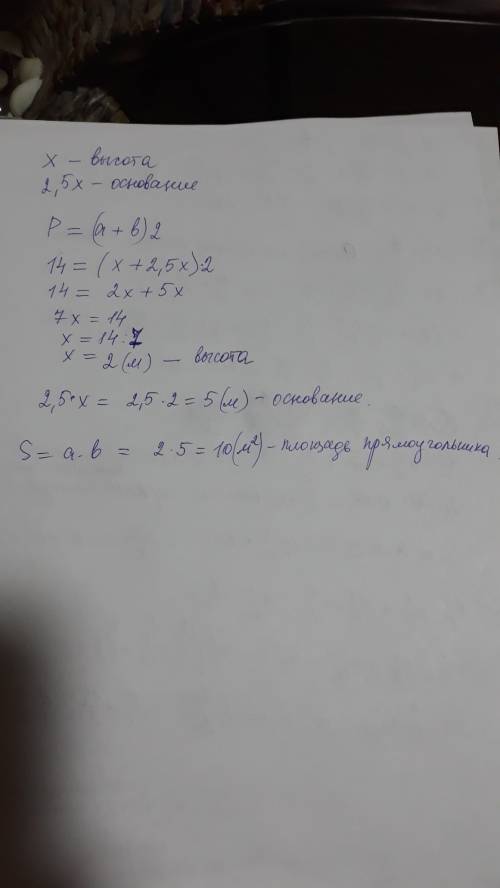 x – высота
2,5x – основание
P = (a + b) 2
14 = (x + 2,5x)·2
14 = 2x + 5x
7x = 14
x = 14 : 7
x = 2 (м) — высота
2,5·x = 2,5·2 = 5 (м) – основание.
S = a·b = 2·5 = 10 (м²) – площадь прямоугольника.